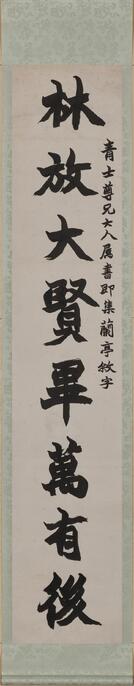 青士尊兄大人属書即集蘭亭敘字
林放大賢畢萬有後